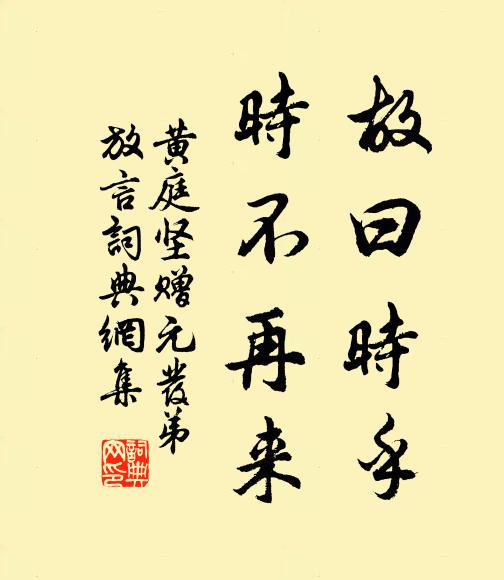 故曰時乎
時不再来
黄庭坚贈元發弟
放言詞典網集
詞典網印